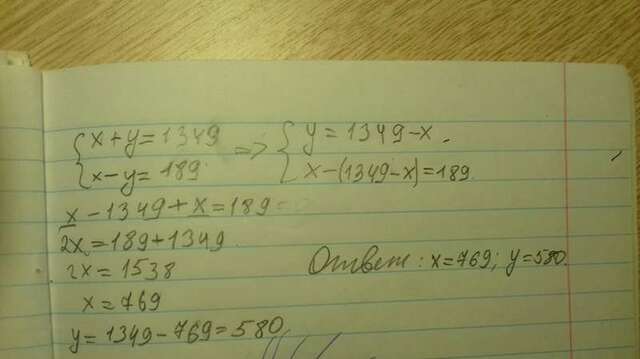 {x+y=1349 => {y=1349-x.
{x-y=189 {x-(1349-x)=189
x-1349+x=189
2x=189+1349
2x=1538
x=769
y=1349-769=580
Ответ: x=769; y=580.